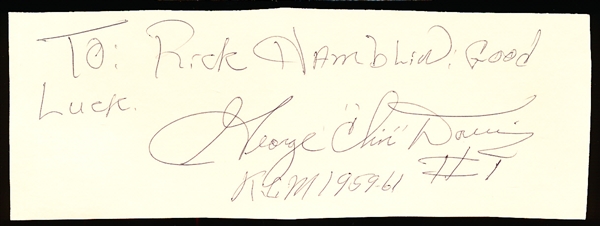 To: Rick Hamblin; Good
Luck.
George "Chin" Downing
#7
K.C.M 1959-61